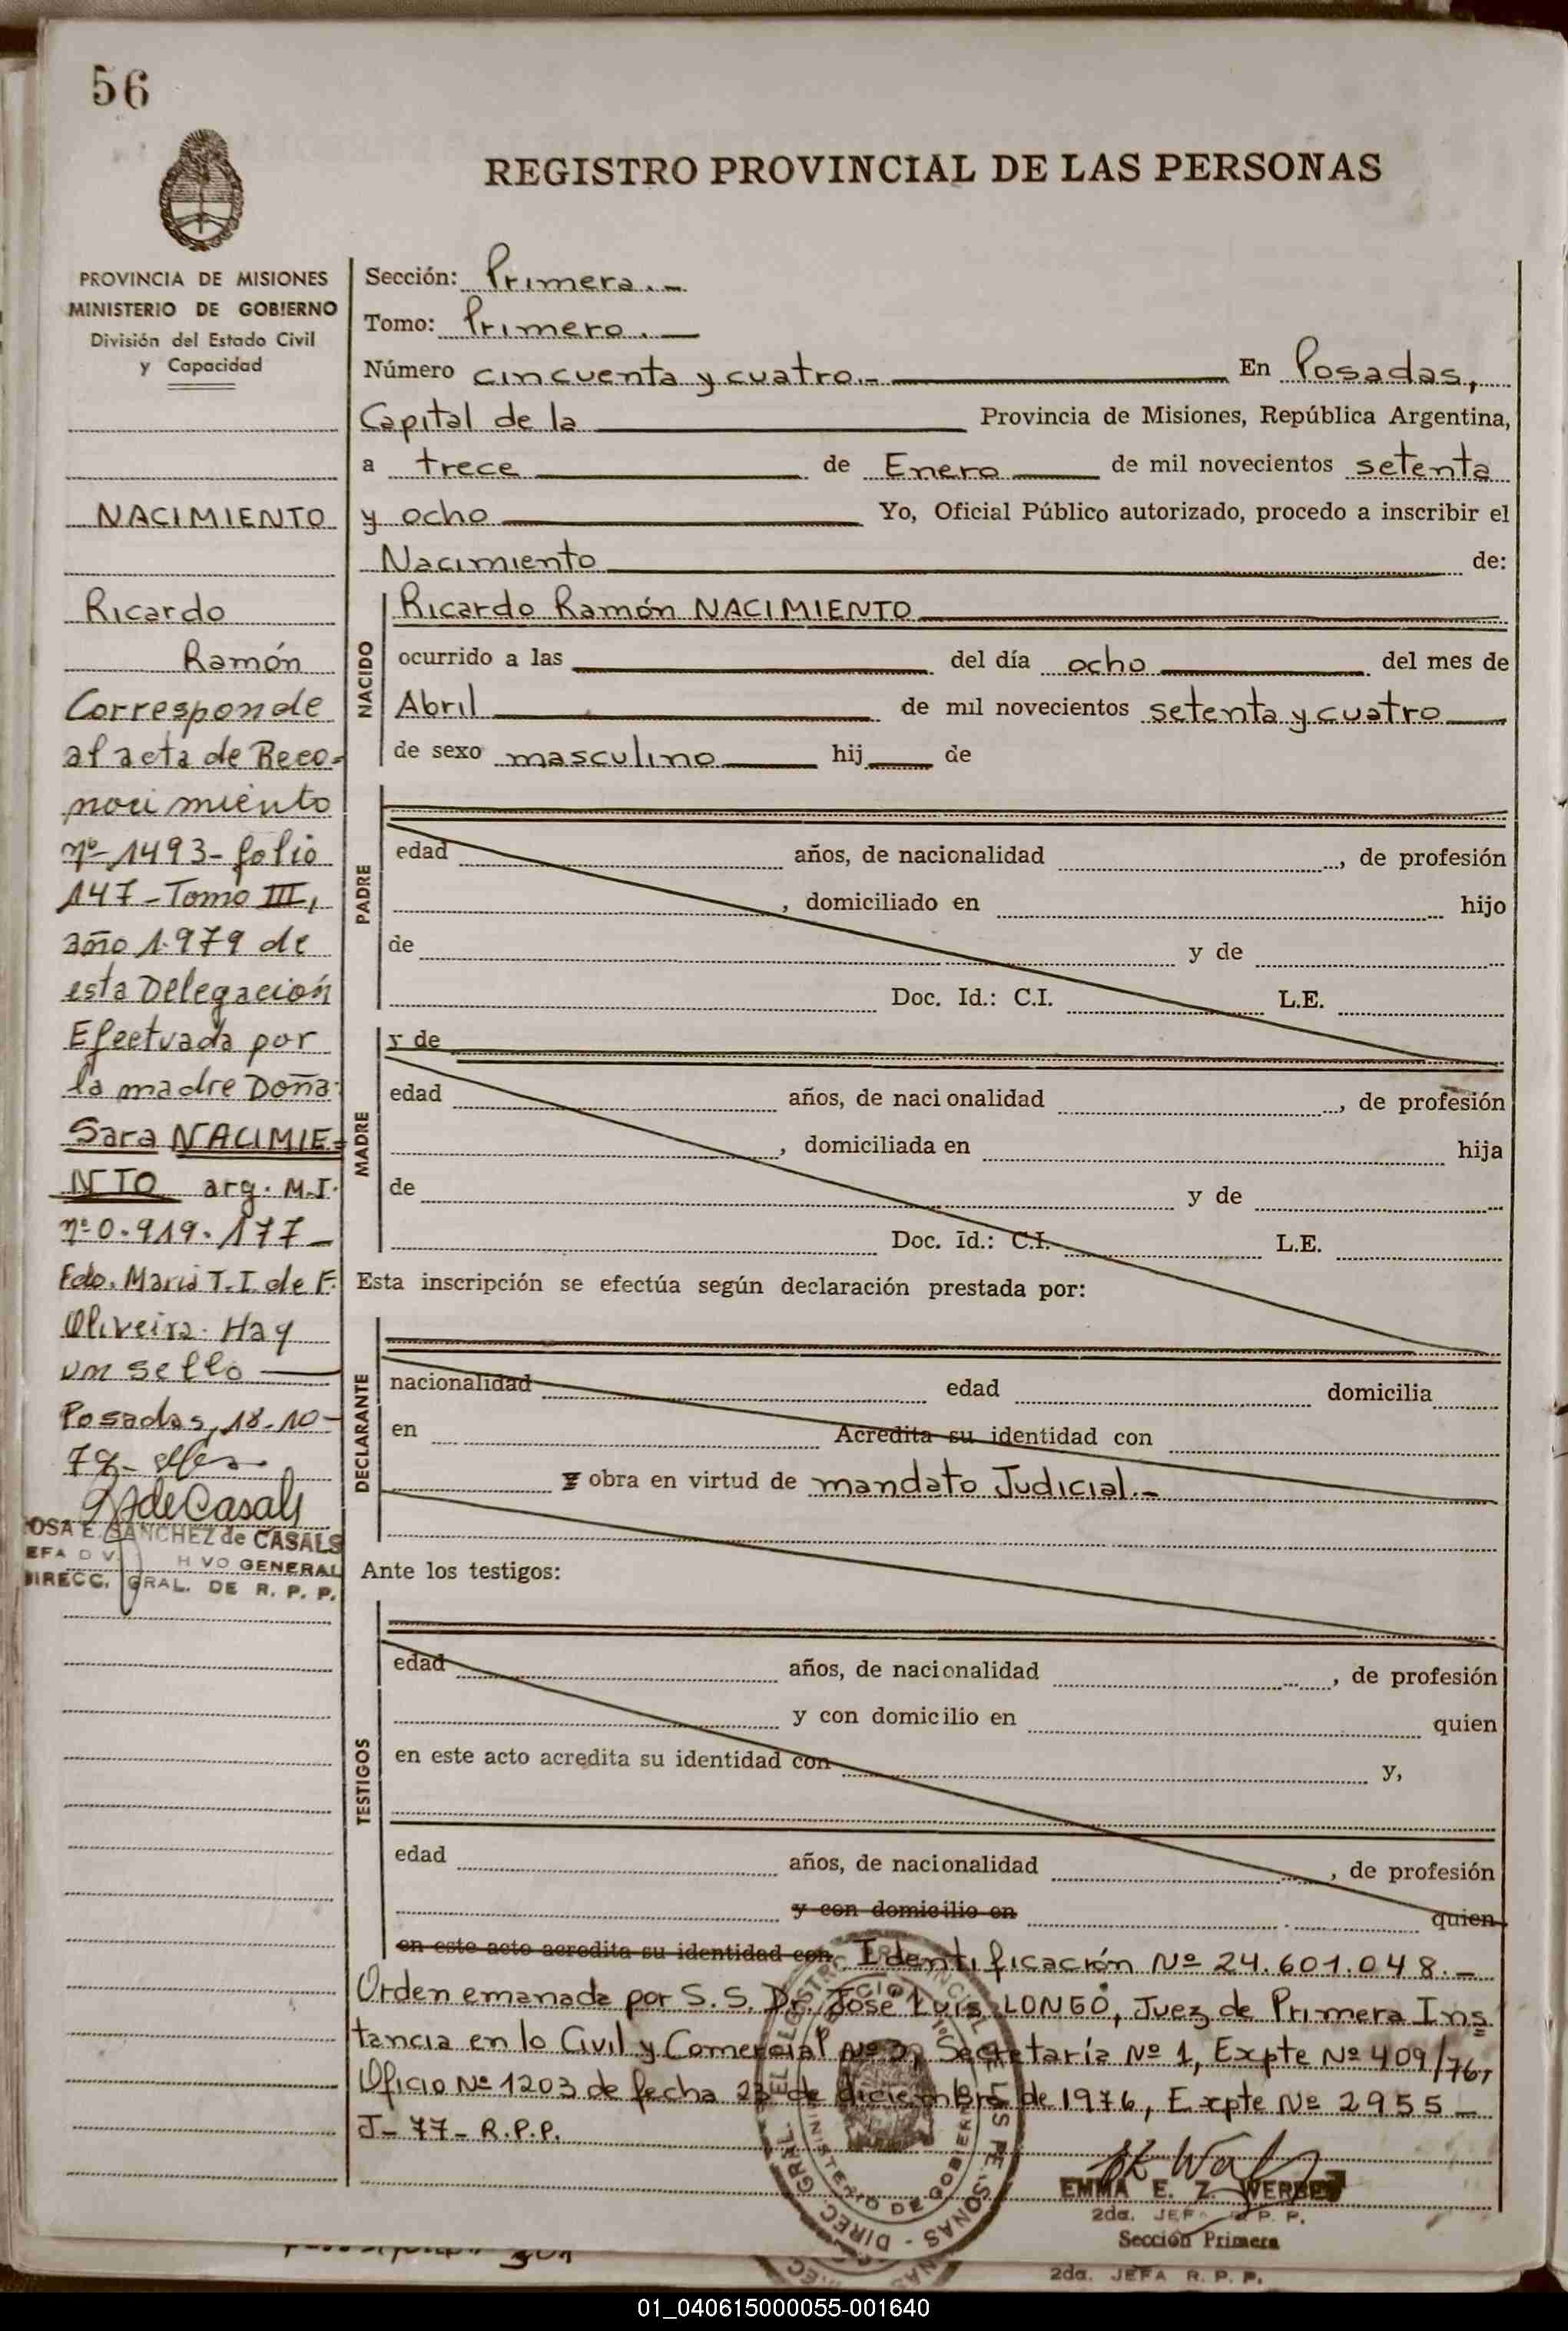 56
REGISTRO PROVINCIAL DE LAS PERSONAS
PROVINCIA DE MISIONES
MINISTERIO DE GOBIERNO
División del Estado Civil
y Capacidad
NACIMIENTO
Ricardo
Ramón
Corresponde
al acta de Reco=
nocimiento
nº 1493-folio
147-Tomo III,
año 1.979 de
esta Delegación
Efectuada por
la madre Doña:
Sara NACIMIE=
NTO arg. M.I.
nº 0.919.177-
Fdo. María T.I. de F.
Oliveira. Hay
un sello
Posadas, 18-10-
79-
SANCHEZ de CASALS
GENERAL
DIRECC. GRAL. DE R. P. P.
Sección: Primera.-
Tomo: Primero.
Número cincuenta y cuatro.- En Posadas,
Capital de la Provincia de Misiones, República Argentina,
a trece de Enero de mil novecientos setenta
y ocho Yo, Oficial Público autorizado, procedo a inscribir el
Nacimiento de:
NACIDO
Ricardo Ramón NACIMIENTO
ocurrido a las del día ocho del mes de
Abril de mil novecientos setenta y cuatro
de sexo masculino hij de
PADRE
edad años, de nacionalidad , de profesión
, domiciliado en hijo
de y de
Doc. Id.: C.I. L.E.
MADRE
y de
edad años, de nacionalidad , de profesión
, domiciliada en hija
de y de
Doc. Id.: C.I. L.E.
Esta inscripción se efectúa según declaración prestada por:
DECLARANTE
nacionalidad edad domicilia
en Acredita su identidad con
obra en virtud de mandato Judicial.-
Ante los testigos:
TESTIGOS
edad años, de nacionalidad , de profesión
y con domicilio en quien
en este acto acredita su identidad con y,
edad años, de nacionalidad , de profesión
y con domicilio en quien
en este acto acredita su identidad con Identificación Nº 24.601.048.-
Orden emanada por S. S. Dr. José Luis LONGO, Juez de Primera Ins=
tancia en lo Civil y Comercial Secretaría Nº 1, Expte Nº 409/76,
Oficio Nº 1203 de fecha 23 de diciembre de 1976, Expte Nº 2955-
J-77-R.P.P.
EMMA E. Z.
2da. JEFA R. P. P.
Sección Primera
2da. JEFA R. P. P.
01_040615000055-001640